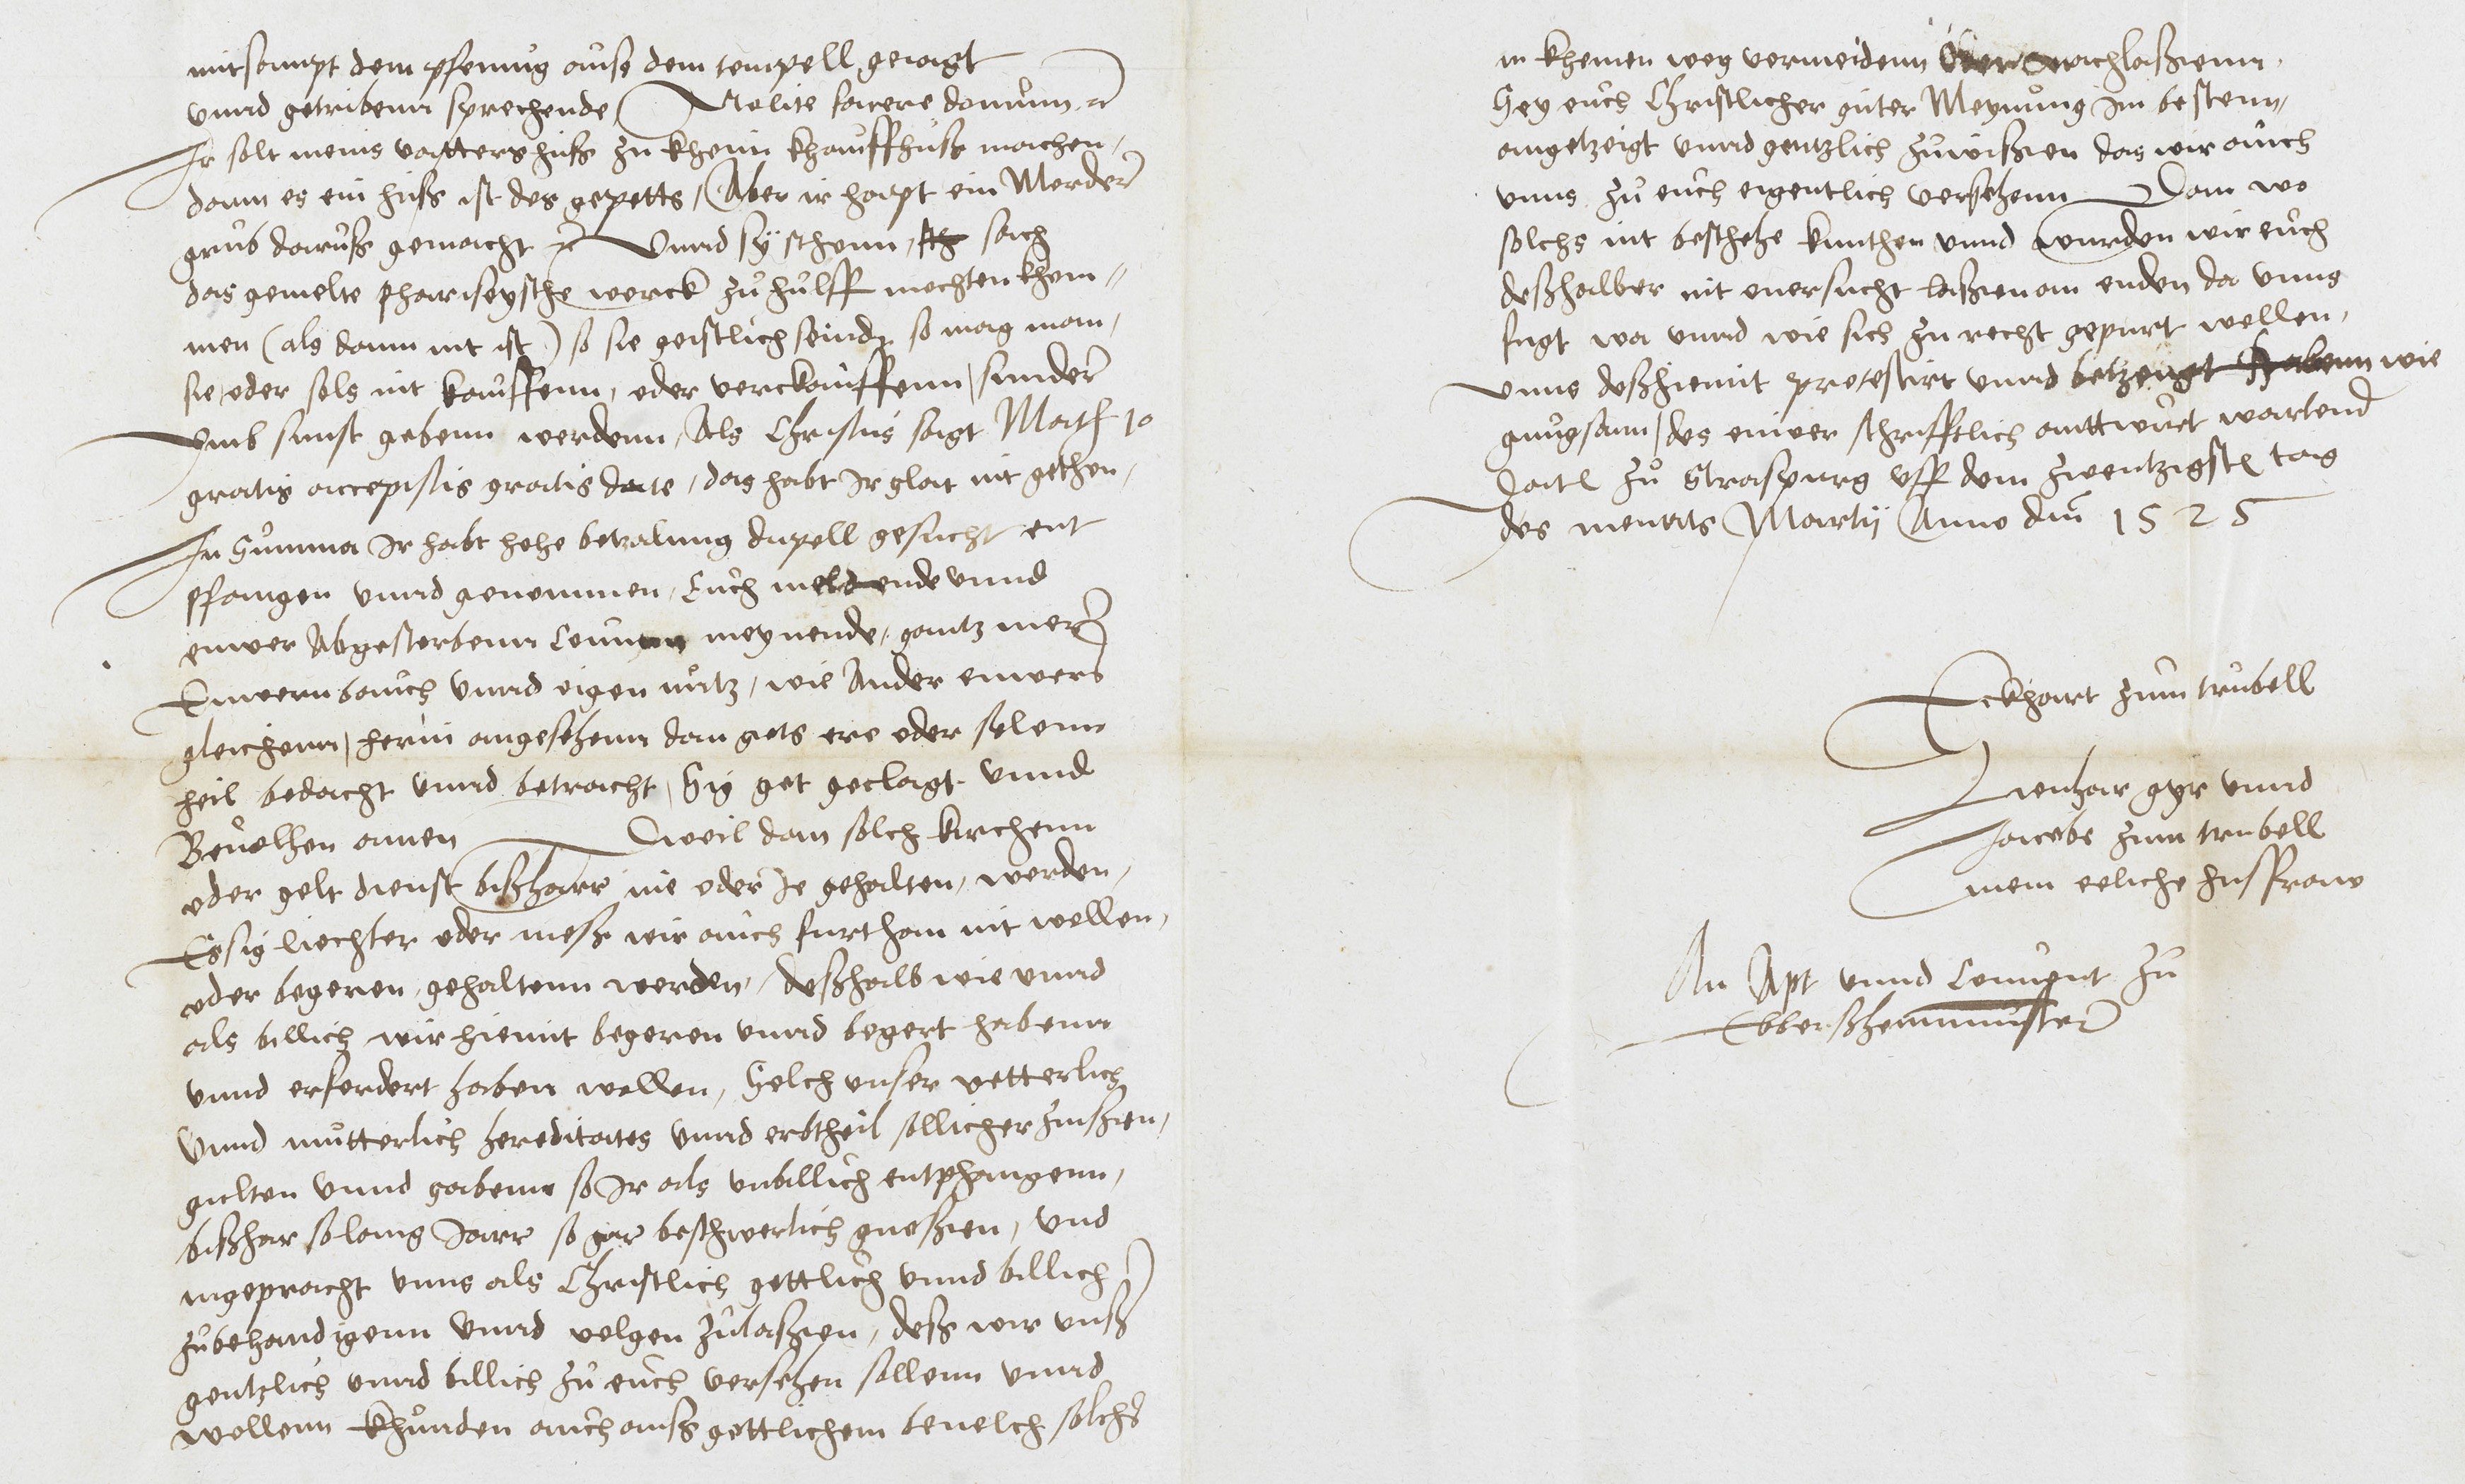 mitsampt dem pfenug ausz dem tempell gejagt
vnnd getribenn sprechende Nolite facere domum etc
Ir solt meins vatters husz zu kheim khauffhusz machen,
dann es ein husz ist des gepetts, Aber ir hapt ein Morder
grub darusz gemacht etc Vnnd sy schonn, sach
das gemelte phariseysche werck zu hulff mochten khom¬
men (als dann nit ist) so sie geistlich seindz so mag man,
sie oder sols nit kauffenn, oder verckauffenn, sunder
Vmb sunst gebenn werdenn, Als Christus sagt Math 10
gratis accepistis gratis date, das habt Ir glat nit gethon,
In Summa Ir habt hohe betzalung dupell gesucht ent
pfangen vnnd genommen, Euch meldende vnnd
euwer Abgestorbenn Conuent meynende, gantz mer
Euwern bauch vnnd eigen nutz, wie Ander euwers
gleichenn, herin angesehenn dan gots ere oder selenn
heil bedacht vnnd betracht, Sig got geclagt vnnd
Beuolhen amen Dweil dan solch kirchenn
oder gelt dienst biszharr nie oder Ie gehalten, worden,
Es sig liechter oder mesz wir auch furthan nit wollen,
oder begeren, gehaltenn werden, deszhalb wie vnnd
als billich wir hiemit begeren vnnd begert habenn
vnnd erfordert haben wollen, Solch vnser vetterlich
Vnnd mutterlich hereditates vnnd erbtheil sollicher zinszen,
gulten vnnd gabenn so Ir als vnbillich entphangenn,
biszhar so lang Jarr so gar beschwerlich gnoszen, vnd
ingepracht vnns als Christlich gottlich vnnd billich
zubehandigenn vnnd volgen zulaszen, desz wir vnsz
gentzlich vnnd billich zu euch versehen sollenn vnnd
wollenn khunden auch ausz gottlichem beuelch solchs
in kheinen weg vermeidenn oder nachlaszenn,
Sey euch Christlicher guter Meynung im bestenn,
angetzeigt vnnd gentzlich zuwiszen das wir auch
vnns zu euch eigentlich versehenn Dan wo
solchs nit beschehe kunthen vnnd wurden wir euch
deszhalber nit onersucht laszen an enden da vnns
fugt wa vnnd wie sich zu recht gepurt wollen,
vnns desz hiemit protestirt vnnd betzeugt habenn wie
gnugsam, des euwer schrifftlich anttwurt wartend
Dat zu Straspurg vff dem zwentzigst tag
des monats Martij Anno dm 1525
Eckhart zum trubell
Lienhar gyr vnnd
Jacobe zum trubell
mein eeliche husfrauw
An Apt vnnd Conuent zu
Ebberszhemmunster